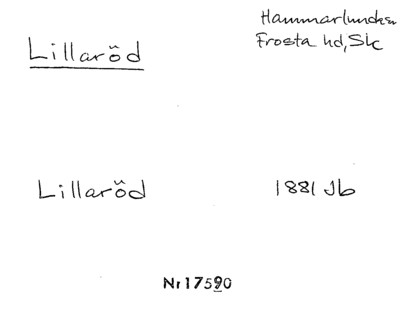 Hammarlunda sn
Lillaröd
Frosta hd, Sk
Lillaröd 1881 Jb
Nr 17590